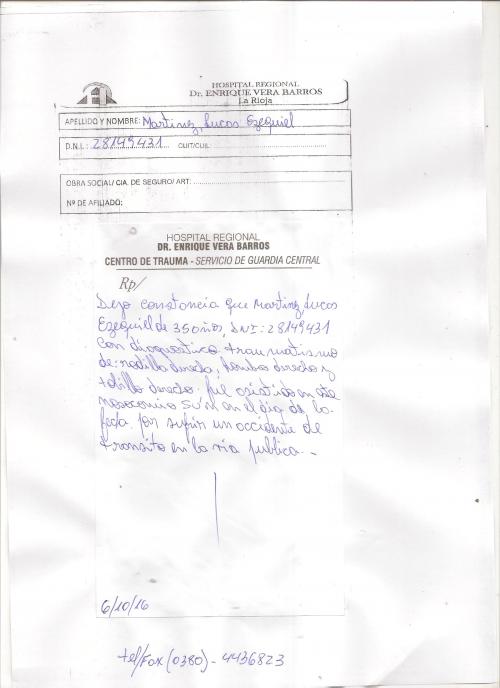 HOSPITAL REGIONAL
Dr. ENRIQUE VERA BARROS
La Rioja
APELLIDO Y NOMBRE: Martinez, Lucos Ezequiel
D.N.I.: 28149431 CUIT/CUIL:
OBRA SOCIAL/ CIA. DE SEGURO/ ART:
Nº DE AFILIADO:
HOSPITAL REGIONAL
DR. ENRIQUE VERA BARROS
CENTRO DE TRAUMA - SERVICIO DE GUARDIA CENTRAL
Rp/
Dejo constancia que Martinez, Lucos
Ezequiel de 35 años, DNI: 28149431
Con diagnostico traumatismo
de: rodilla derecha, hombro derecho y
tobillo derecho. fue asistido en este
nosocomio en el dia de la
fecha por sufrir un accidente de
transito en la via publica.-
6/10/16
tel/Fax (0380) - 4436823